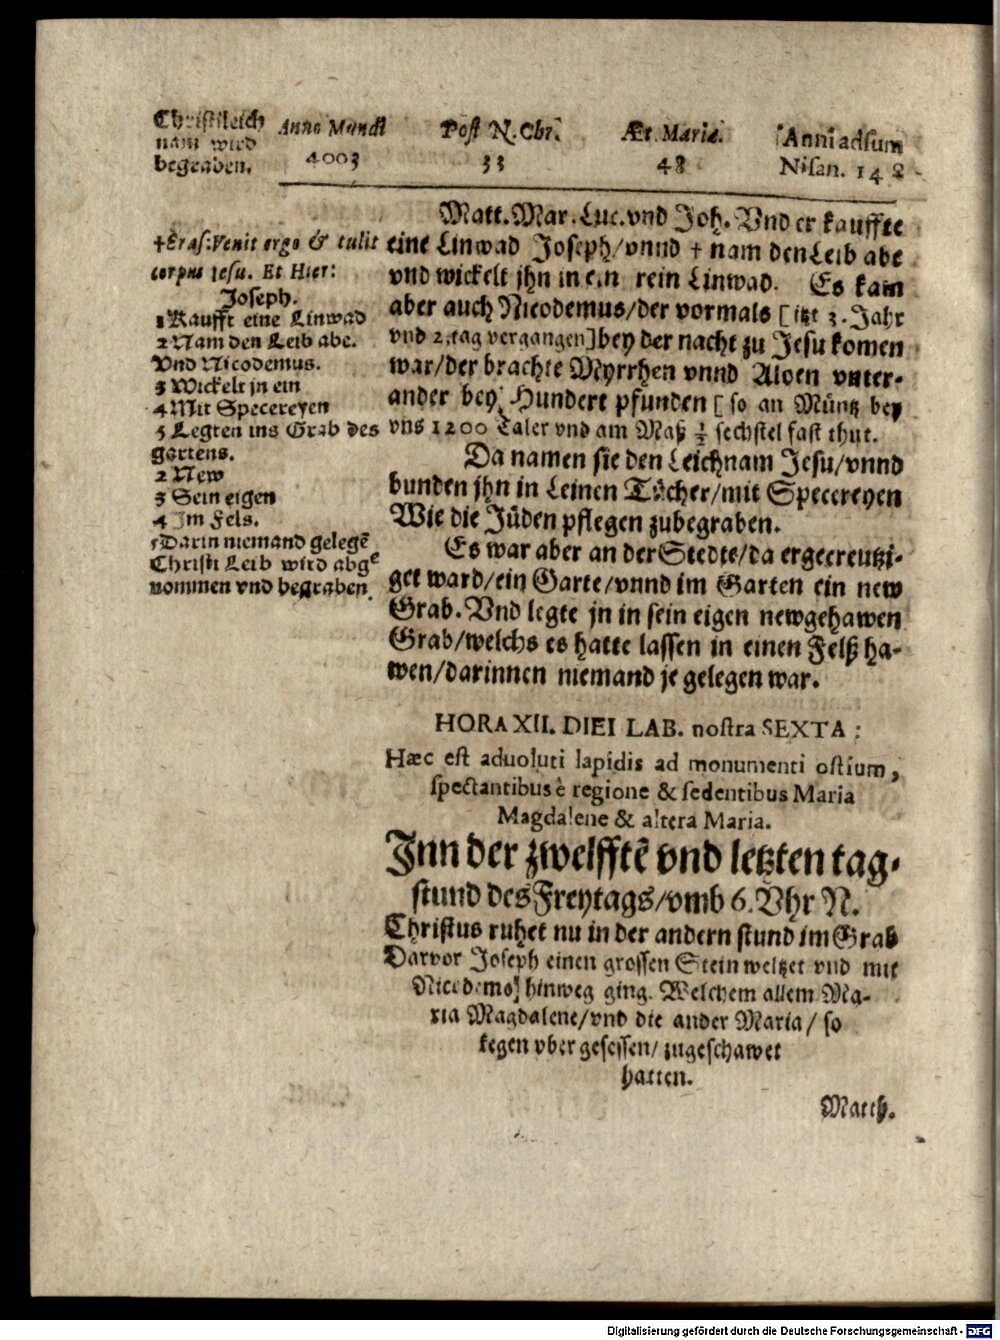 Christi leich
nam wird
begraben.
Anno Mundi Post N. Chr. Æt. Mariæ. Anni adsum
4003 33 48 Nisan. 14
Matt. Mar. Luc. vnd Joh. Vnd er kauffte
eine Linwad Joseph/vnnd † nam den Leib abe
vnd wickelt jhn in ein rein Linwad. Es kam
aber auch Nicodemus/der vormals [itzt 3. Jahr
vnd 2. tag vergangen] bey der nacht zu Jesu komen
war/der brachte Myrrhen vnnd Aloen vnter-
ander bey Hundert pfunden [so an Müntz bey
vns 1200 Taler vnd am Maß ½ sechstel fast thut.
Da namen sie den Leichnam Jesu/vnnd
bunden jhn in Leinen Tücher/mit Specereyen
Wie die Jüden pflegen zubegraben.
Es war aber an der Stedte/da er gecreutzi-
get ward/ein Garte/vnnd im Garten ein new
Grab. Vnd legte jn in sein eigen newgehawen
Grab/welchs es hatte lassen in einen Felß ha-
wen/darinnen niemand je gelegen war.
†Eras: Venit ergo & tulit
corpus Iesu. Et Hier:
Joseph.
1 Kaufft eine Linwad
2 Nam den Leib abe.
Vnd Nicodemus.
3 Wickelt jn ein
4 Mit Specereyen
5 Legten ins Grab des
gartens.
2 New
3 Sein eigen
4 Im Fels.
5 Darin niemand gelegē
Christi Leib wird abge
nommen vnd begraben.
HORA XII. DIEI LAB. nostra SEXTA:
Hæc est advoluti lapidis ad monumenti ostium,
spectantibus è regione & sedentibus Maria
Magdalene & altera Maria.
Inn der zwelfftē vnd letzten tag-
stund des Freytags/vmb 6. Vhr N.
Christus ruhet nu in der andern stund im Grab
Darvor Joseph einen grossen Stein weltzet vnd mit
Nicodemo] hinweg ging. Welchem allem Ma-
ria Magdalene/vnd die ander Maria/ so
kegen vber gesessen/ zugeschawet
hatten.
Matth.
Digitalisierung gefördert durch die Deutsche Forschungsgemeinschaft - DFG